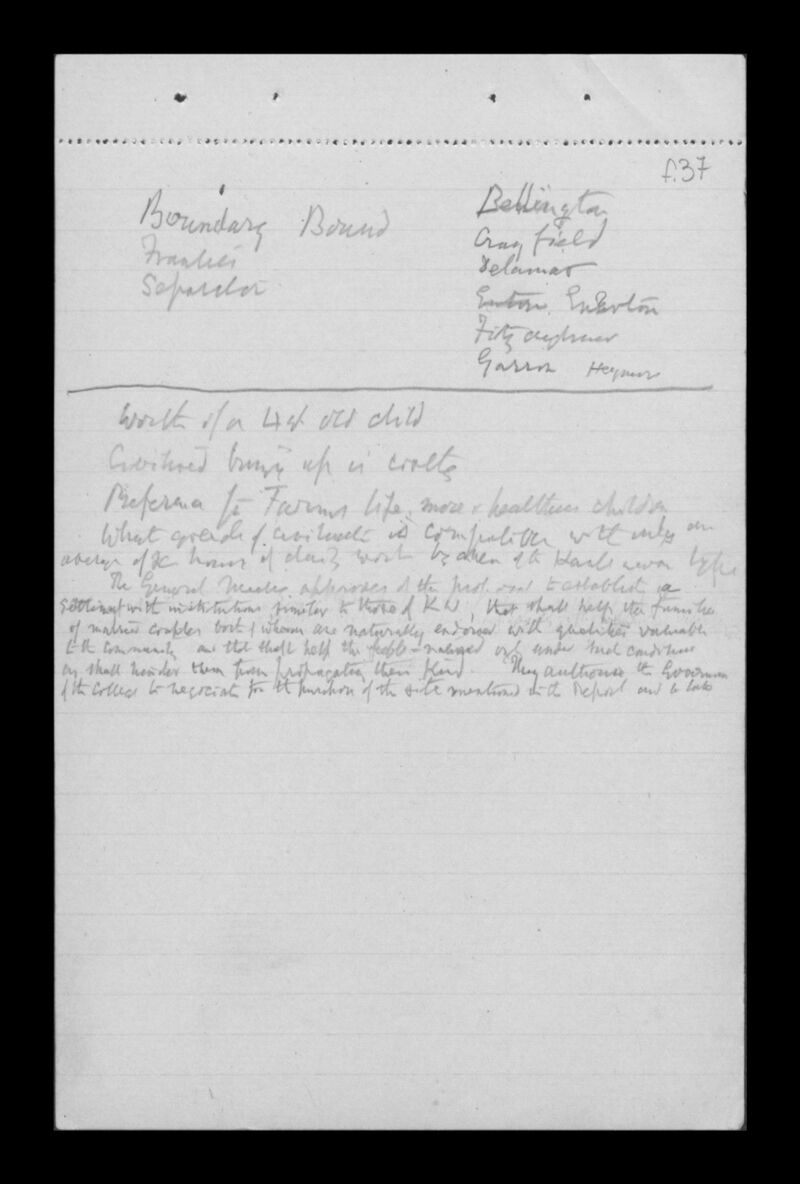 f.37
Boundary Bound
Frontier
Separator
Bellington
Crayfield
Delamar
Enton Enderton
Fitz
Garron Heymore
Worth of a 4 yr old child
Civilised bringing up is costly
Preference for Farms life, more & healthier children
What grade of civilisation is compatible with only an
average of hours of daily work by men of the type
The General Meeting approves of the proposal to establish a
settlement with institutions similar to those of K W, that shall help the families
of married couples both of whom are naturally endowed with qualities valuable
to the community and that shall help the feeble-natured only under such conditions
as shall hinder them from propagating their kind. They authorise the Governors
of the College to negociate for the purchase of the site mentioned in the Report and to take